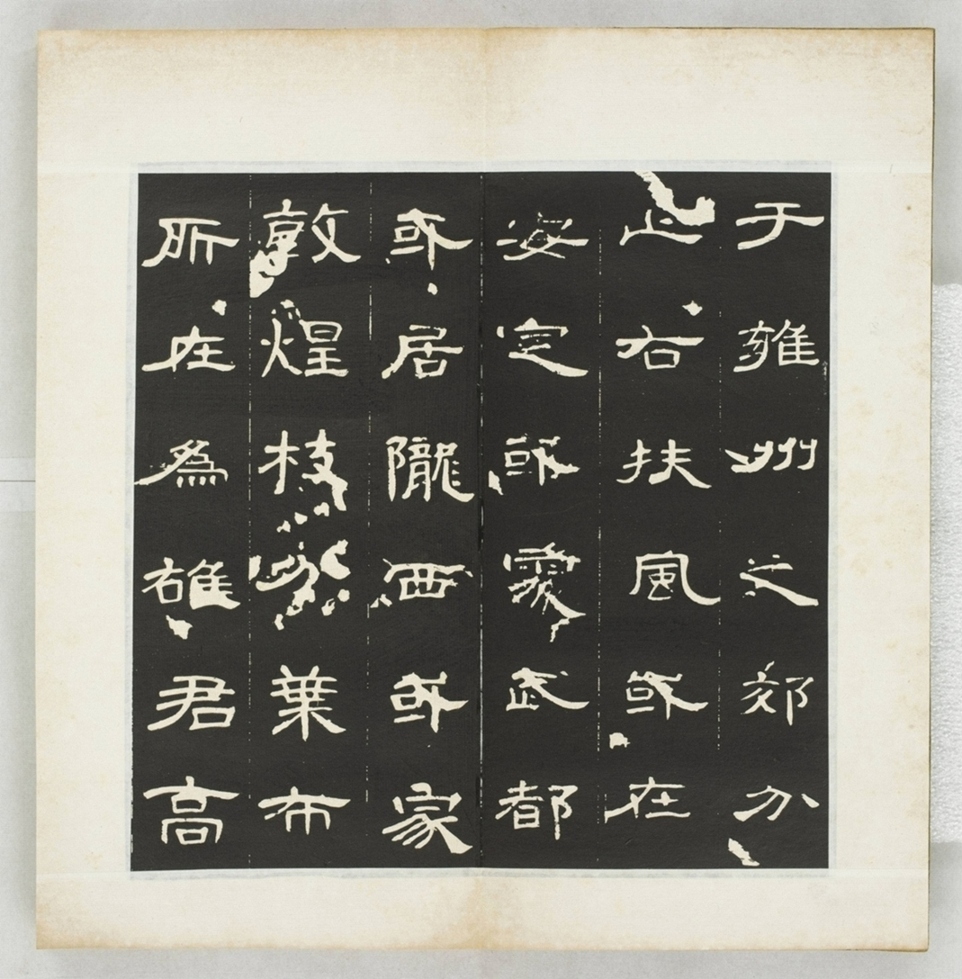 于雍州之郊分
止右扶風或在
安定或處武都
或居隴西或家
敦煌枝分葉布
所在為雄君高